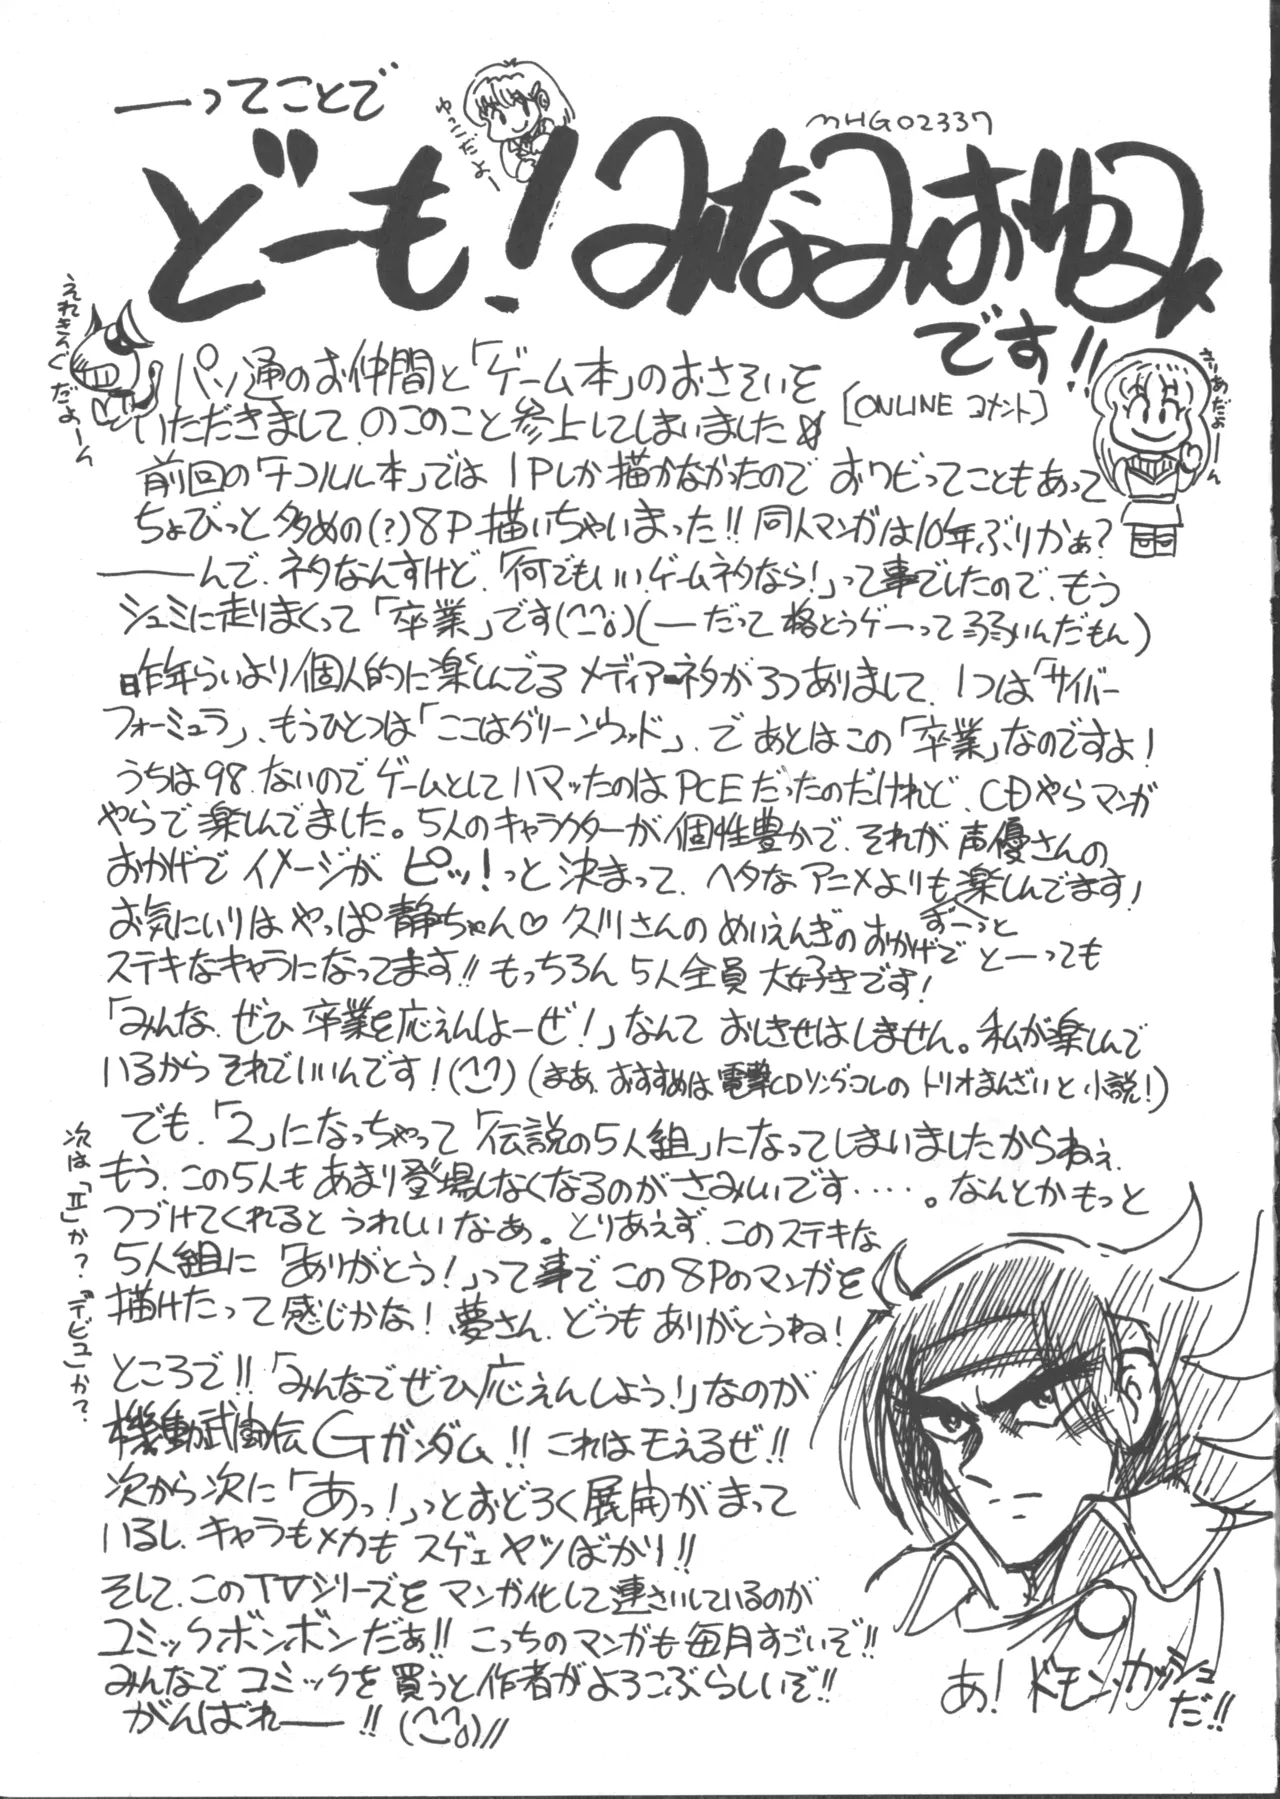 ――ってことで
ゆっこだよー
MHG02337
どーも！みなみおゆみ
です!!
えれきんぐだよーん
きりあだよーん
パソ通のお仲間と「ゲーム本」のおさそいを
[ONLINE コメント]
いただきまして、のこのこと参上してしまいました☆
前回の「ナコルル本」では 1Pしか描かなかったので おワビってこともあって
ちょびっと多めの(?)8P描いちゃいまった!! 同人マンガは10年ぶりかぁ？
――んで、ネタなんすけど、「何でもいい、ゲームネタなら！」って事でしたので、もう
シュミに走りまくって「卒業」です(^^;)(―だって格とうゲーって弱いんだもん)
昨年らいより個人的に楽しんでるメディアーネタが3つありまして、1つは「サイバー
フォーミュラ」、もうひとつは「ここはグリーンウッド」、であとはこの「卒業」なのですよ！
うちは98、ないのでゲームとしてハマッたのはPCEだったのだけれど、CDやらマンガ
やらで楽しんでました。5人のキャラクターが個性豊かで、それが声優さんの
おかげでイメージがピッ！っと決まって、ヘタなアニメよりも楽しんでます！
お気にいりはやっぱ静ちゃん♡ 久川さんのめいえんぎのおかげでずーっととーっても
ステキなキャラになってます!! もっちろん5人全員大好きです！
「みんな、ぜひ卒業を応えんしよーぜ！」なんて おしきせはしません。私が楽しんで
いるからそれでいいんです！(^^) (まあ、おすすめは電撃CDソングコレのトリオまんざいと小説！)
でも、「2」になっちゃって「伝説の5人組」になってしまいましたからねぇ、
もう、この5人もあまり登場しなくなるのがさみしいです・・・・。なんとかもっと
つづけてくれるとうれしいなあ。とりあえず、このステキな
5人組に「ありがとう！」って事でこの8Pのマンガを
描けたって感じかな！夢さん、どうもありがとうね！
次は「II」か？「デビュー」かて？
ところで!!「みんなでぜひ応えんしよう！」なのが
機動武闘伝Gガンダム!! これはモえるぜ!!
次から次に「あっ！」っとおどろく展開がまって
いるし、キャラもメカもスゲェヤツばかり!!
そして、このTVシリーズをマンガ化して連さいしているのが
コミックボンボンだぁ!! こっちのマンガも毎月すごいぞ!!
みんなでコミックを買うと作者がよろこぶらしいぞ!!
がんばれ――!! (^^;)//
あ！ドモン、カッシュ
だ!!